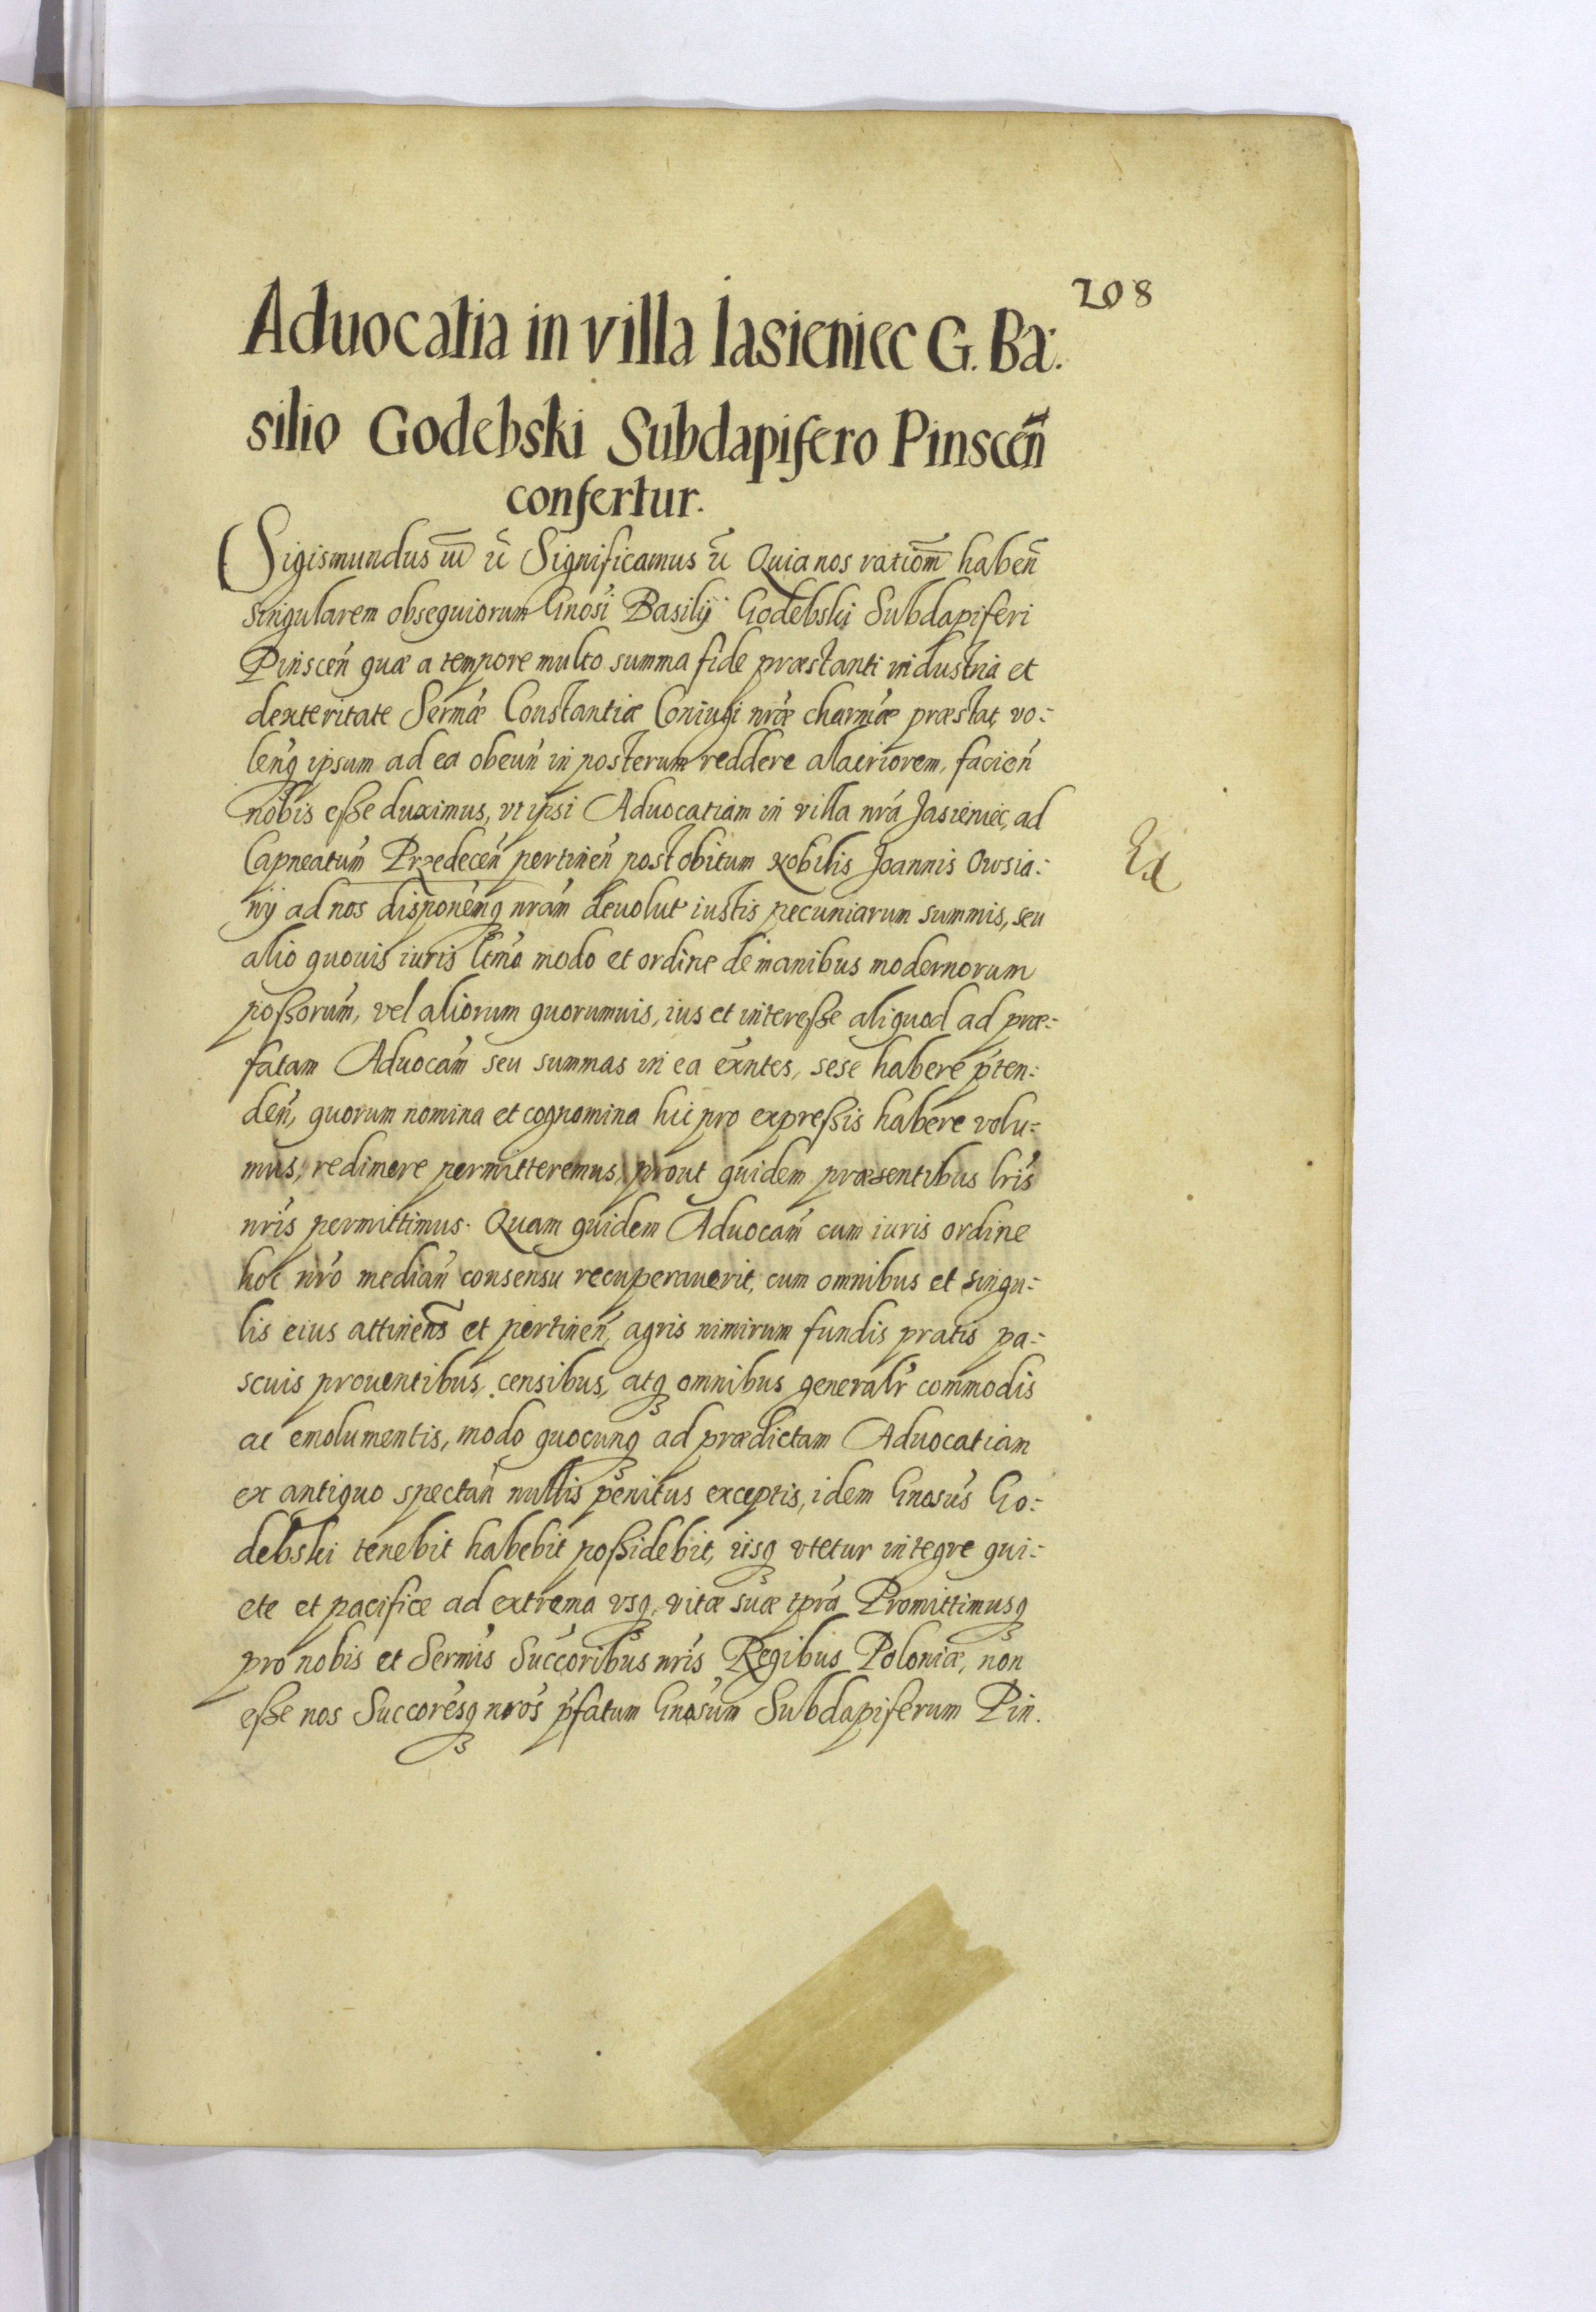 208
Aduocatia in villa Iasieniec G. Ba:
silio Godebski Subdapifero Pinsceñ
confertur.
Sigismundus III etc̃ Significamus etc̃ Quia nos ratiom̃ habeñ
singularem obsequiorum Gnosi Basilÿ Godebski Subdapiferi
Pinsceń quæ a tempore multo summa fide præstanti industria et
dexteritate Sermæ Constantiæ Coniugi nræ charmæ præstat, vo:
lenq̃ ipsum ad ea obeuń in posterum reddere alacriorem, facień
nobis eße duximus, vt ipsi Aduocatiam in villa nrá Jasieniec, ad
Capneatum Przedeceń pertineń post obitum Nobilis Joannis Owsia:
nÿ ad nos disponenq̃ nram deuolut iustis pecuniarum summis, seu
alio quouis iuris ltmo modo et ordine de manibus modernorum
poßorum, vel aliorum quorumuis, ius et intereße aliquod ad præ:
fatam Aduocam seu summas in ea exntes, sese habere pten:
deń, quorum nomina et cognomina hic pro expreßis habere volu:
mus, redimere permitteremus, prout quidem præsentibus lris
nris permittimus. Quam quidem Aduocam cum iuris ordine
hoc nro mediań consensu recuperauerit, cum omnibus et singu:
lis eius attineñs et pertineń, agris nimirum fundis pratis pa:
scuis prouentibus, censibus, atq̃ omnibus generalr commodis
ac emolumentis, modo quocunq̃ ad prædictam Aduocatiam
ex antiquo spectań nullis penitus exceptis, idem Gnosus Go:
debski tenebit habebit poßidebit, iisq̃ vtetur integre qui:
ete et pacifice ad extrema vsq̃ vitæ suæ tpra Promittimusq̃
pro nobis et Sermis Succoribus nris Regibus Poloniæ, non
eße nos Succoresq̃ nros pfatum Gnosum Subdapiferum Pin.
Ex